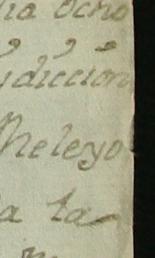 ia ocho
udiccion
Meleyo
a ta